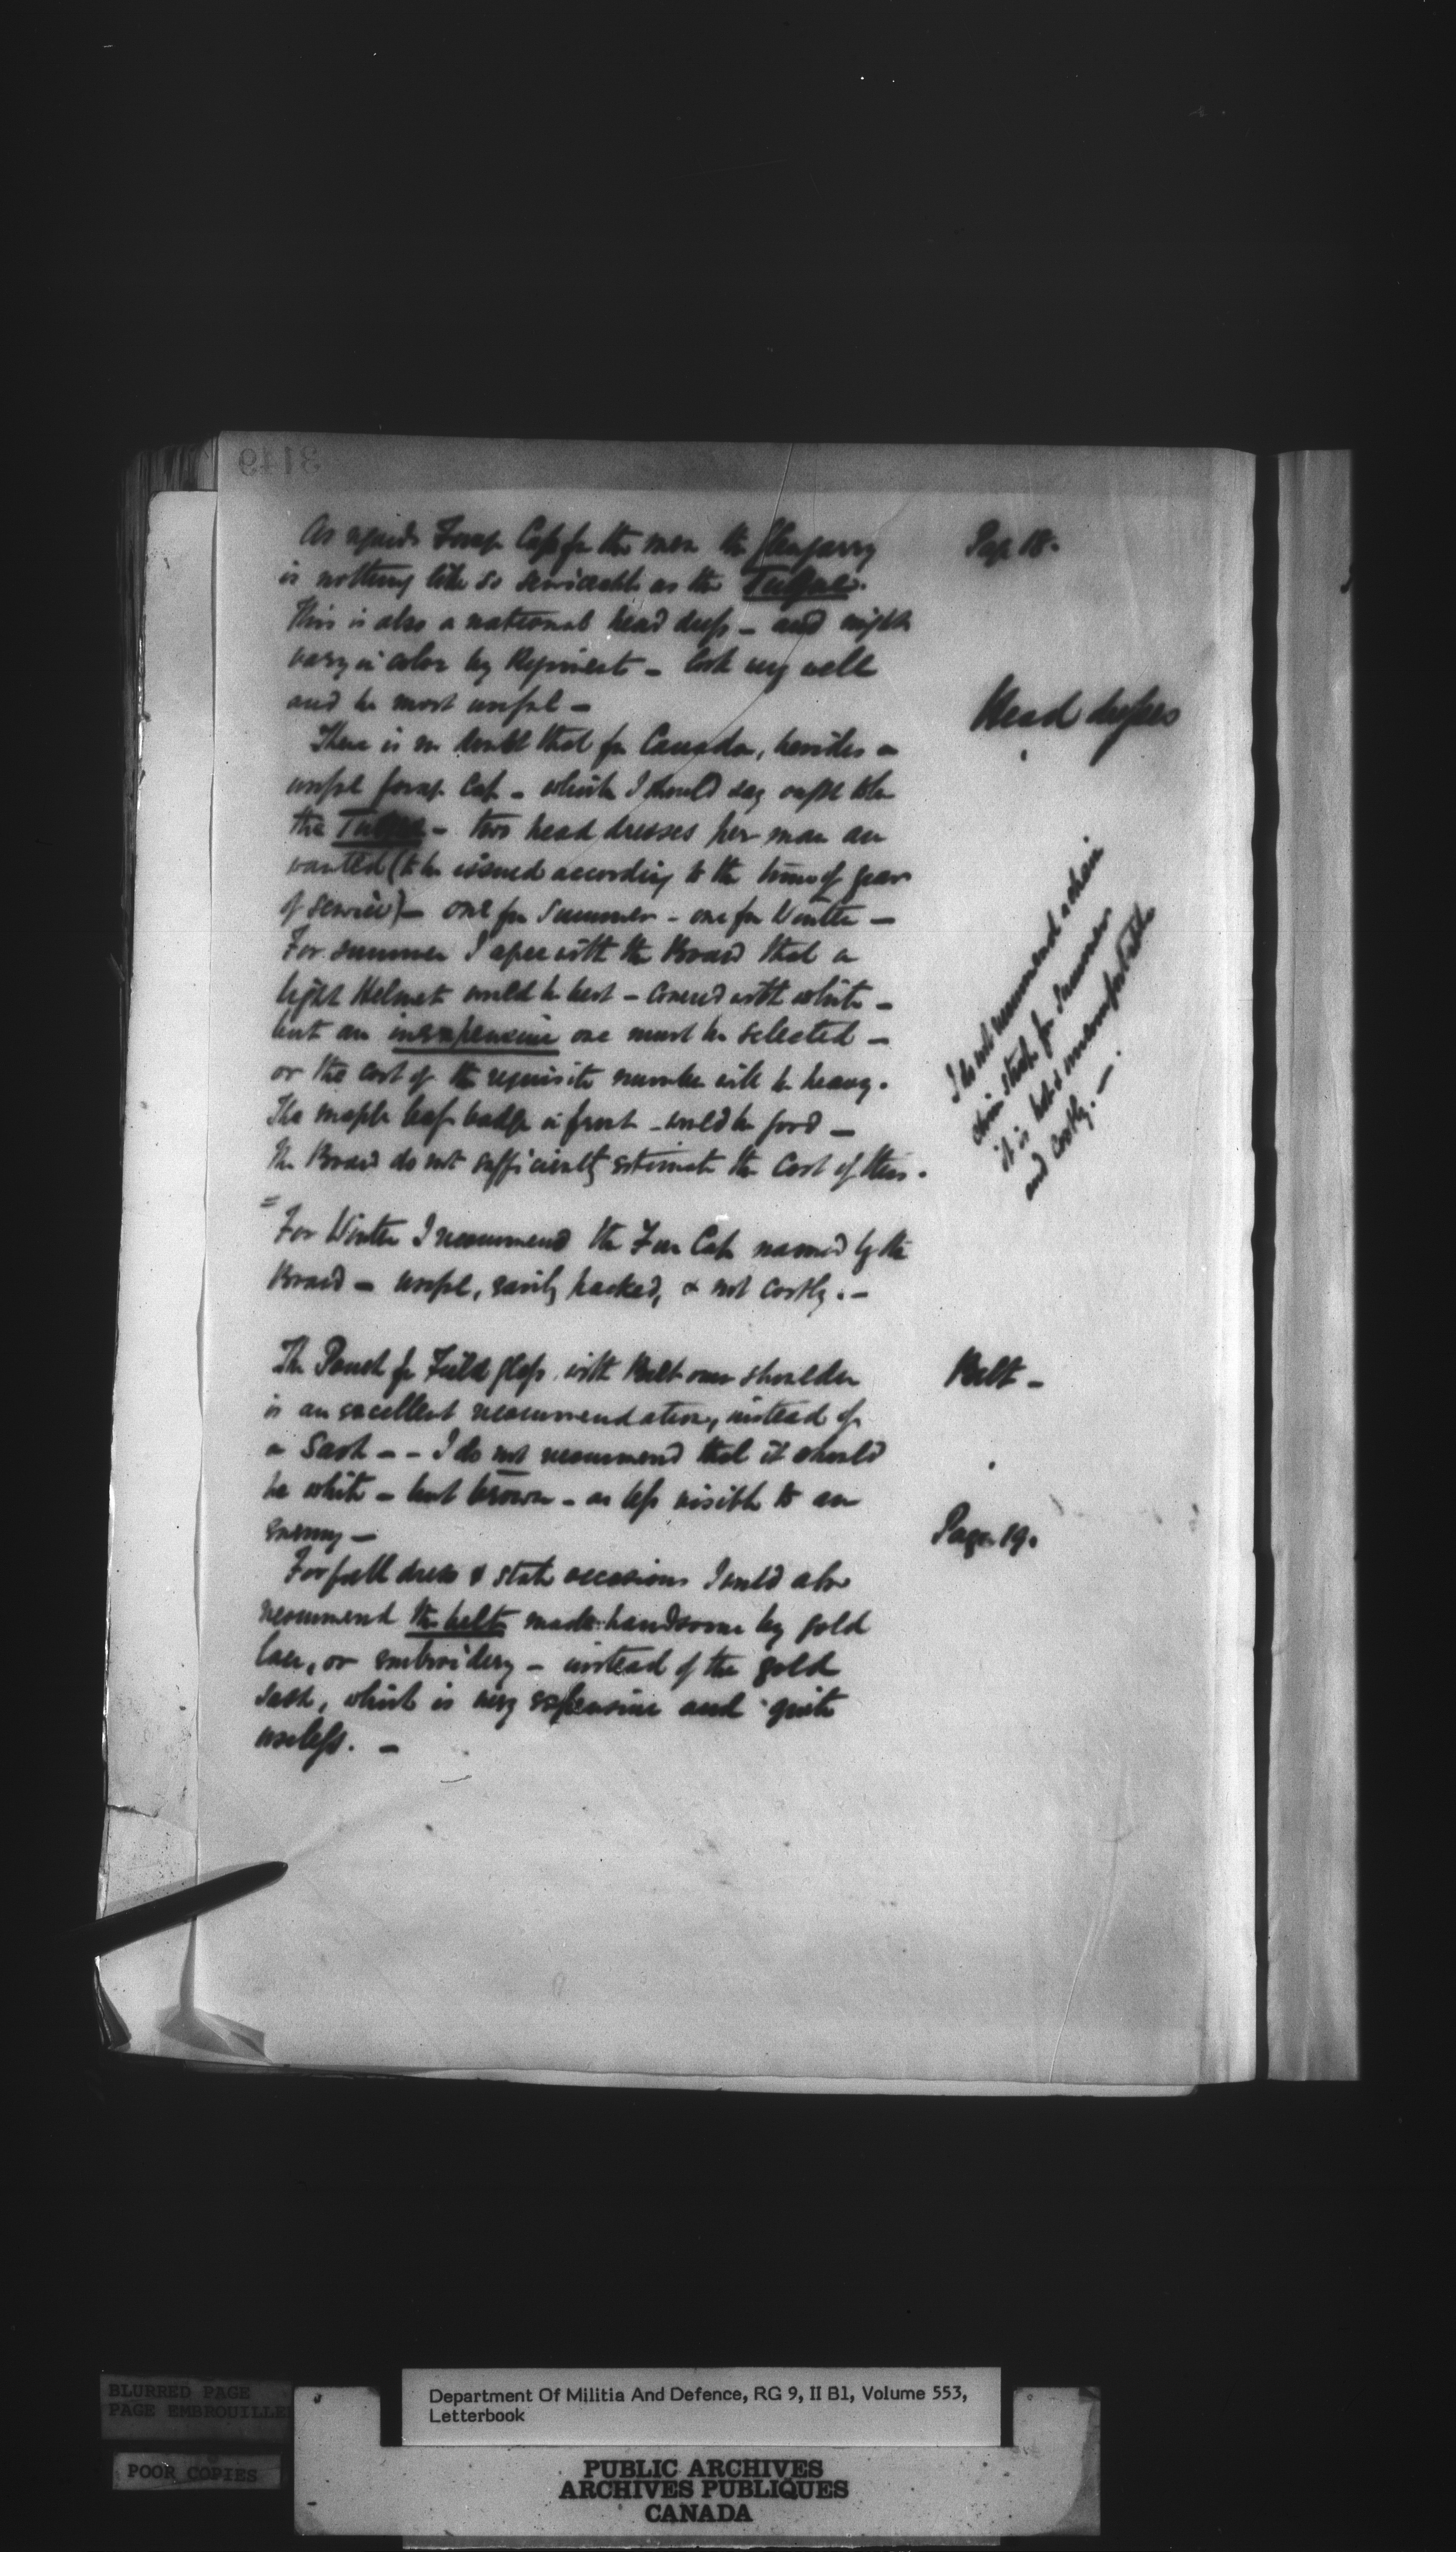 3149
As regards Forage Caps for the men the Glengarry
is nothing like so serviceable as the Tuque.
This is also a national head dress - and might
vary in color by Regiments - look very well
and be most useful -
There is no doubt that for Canada, besides a
useful forage cap - which I should say ought to be
the Tuque - two head dresses per man are
wanted (to be issued according to the time of year
of service) - one for Summer - one for Winter -
For summer I agree with the Board that a
light Helmet would be best - covered with white -
but an inexpensive one must be selected -
or the cost of the requisite number will be heavy.
The maple leaf badge in front - would be good -
The Board do not sufficiently estimate the cost of these.
=
For Winter I recommend the Fur Cap named by the
Board - useful, easily packed, & not costly. -
The Pouch for Field glass, with Belt over shoulder
is an excellent recommendation, instead of
a Sash - - I do not recommend that it should
be white - but brown - as less visible to an
enemy -
For full dress & state occasions I would also
recommend the belt made handsome by gold
lace, or embroidery - instead of the gold
sash, which is very expensive and quite
useless. -
Page 18.
Head dresses
I do not recommend a chain
chin strap for Summer
it is hot & uncomfortable
and costly. -
Belt -
Page 19.
BLURRED PAGE
PAGE EMBROUILLE
POOR COPIES
Department Of Militia And Defence, RG 9, II B1, Volume 553,
Letterbook
PUBLIC ARCHIVES
ARCHIVES PUBLIQUES
CANADA